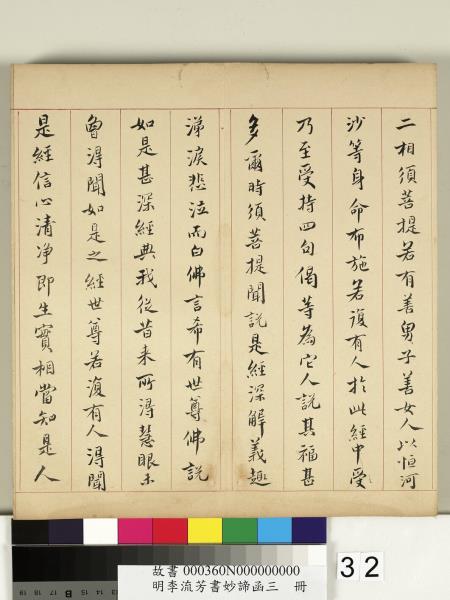 二相須菩提若有善男子善女人以恒河
沙等身命布施若復有人於此經中受
乃至受持四句偈等為它人説其福甚
多爾時須菩提聞説是經深解義趣
涕淚悲泣而白佛言希有世尊佛説
如是甚深經典我從昔来所得慧眼未
曾得聞如是之經世尊若復有人得聞
是經信心清净即生實相當知是人
故書 000360N000000000
明李流芳書妙諦函三　冊
32